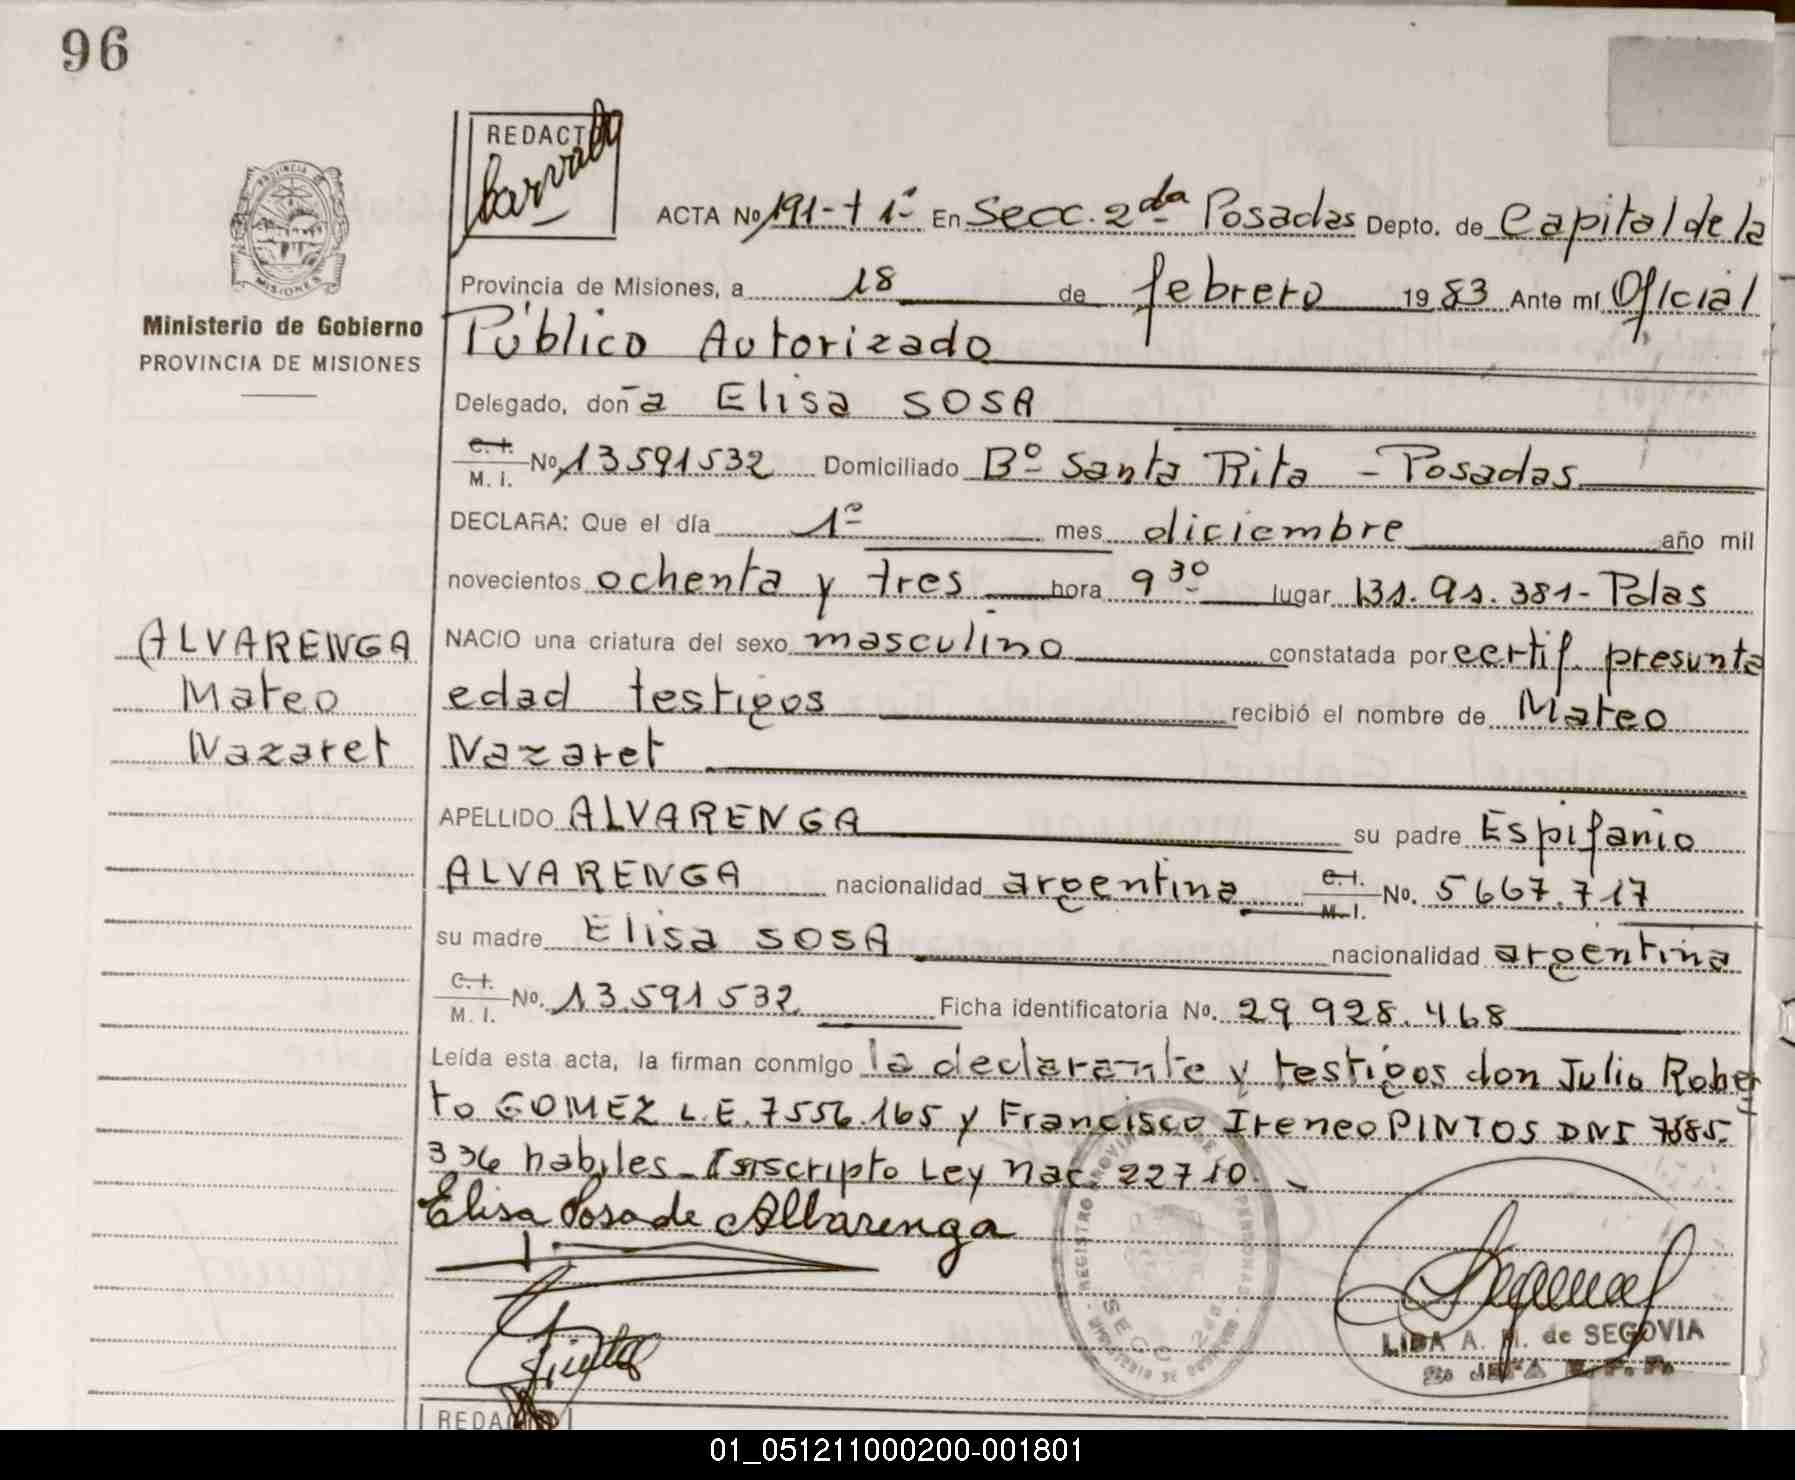 96
REDACT
PROVINCIA DE
MISIONES
Ministerio de Gobierno
PROVINCIA DE MISIONES
ACTA No 191-t 1º En Secc. 2da Posadas Depto. de Capital de la
Provincia de Misiones, a 18 de febrero 1983 Ante mí Oficial
Público Autorizado
Delegado, doña Elisa SOSA
C. I.
M. I. No 13591532 Domiciliado Bº Santa Rita - Posadas
DECLARA: Que el día 1º mes diciembre año mil
novecientos ochenta y tres hora 9 30 lugar Bs. As. 381- Pdas
NACIO una criatura del sexo masculino constatada por certif. presunta
edad testigos recibió el nombre de Mateo
Nazaret
ALVARENGA
Mateo
Nazaret
APELLIDO ALVARENGA su padre Espifanio
ALVARENGA nacionalidad argentina C. I.
M. I. No. 5667.717
su madre Elisa SOSA nacionalidad argentina
C. I.
M. I. No. 13.591532 Ficha identificatoria No. 29 928.468
Leída esta acta, la firman conmigo la declarante y testigos don Julio Rober
to GOMEZ L.E. 7556.165 y Francisco Ireneo PINTOS DNI 7585.
336 habiles_ Inscripto Ley nac. 22710.
Elisa Sosa de Albarenga
REGISTRO PROVINCIAL DE
SECC. 2da
LIDA A. M. de SEGOVIA
REDAC
01_051211000200-001801